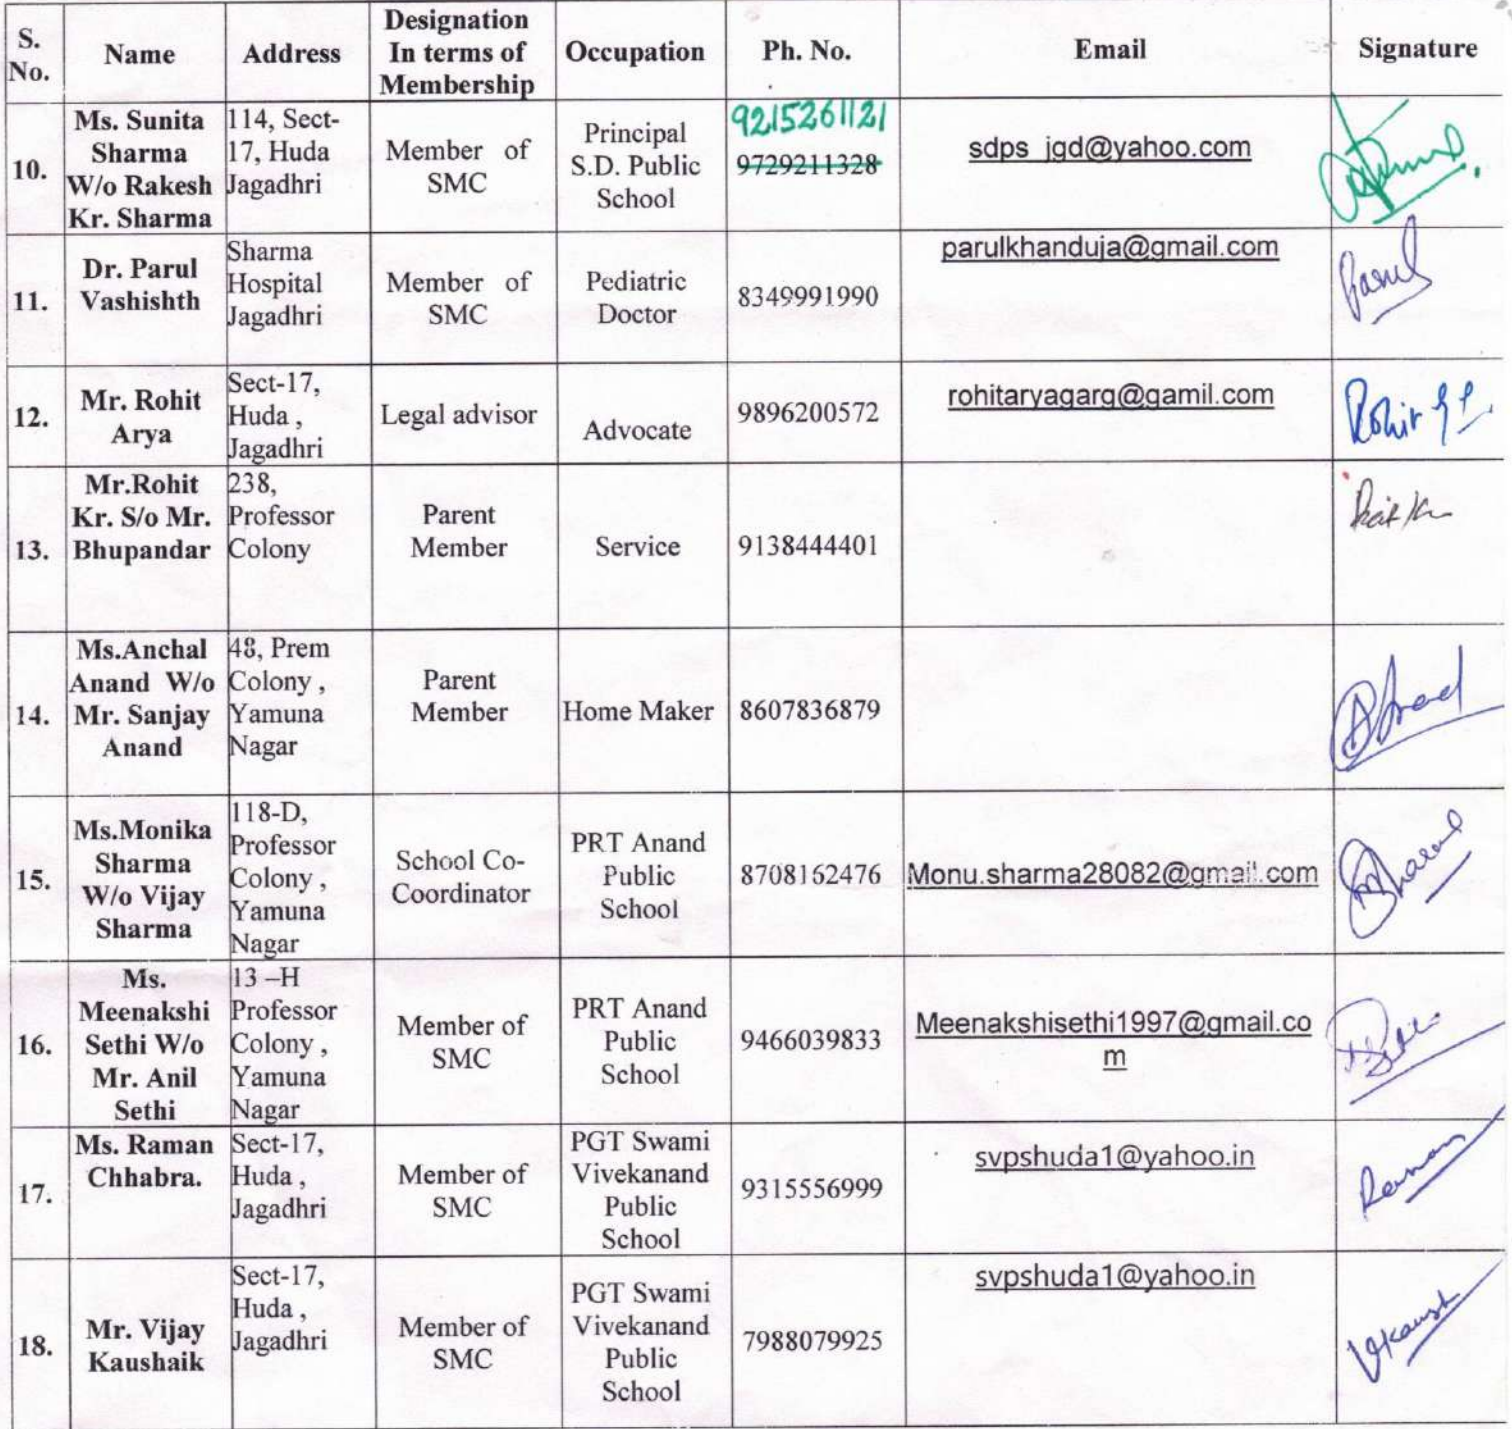 S. No. Name Address Designation In terms of Membership Occupation Ph. No. Email Signature
10. Ms. Sunita Sharma W/o Rakesh Kr. Sharma 114, Sect-17, Huda Jagadhri Member of SMC Principal S.D. Public School 9215261121 9729211328 sdps_jgd@yahoo.com
11. Dr. Parul Vashishth Sharma Hospital Jagadhri Member of SMC Pediatric Doctor 8349991990 parulkhanduja@gmail.com Parul
12. Mr. Rohit Arya Sect-17, Huda , Jagadhri Legal advisor Advocate 9896200572 rohitaryagarg@gamil.com Rohit
13. Mr.Rohit Kr. S/o Mr. Bhupandar 238, Professor Colony Parent Member Service 9138444401
14. Ms.Anchal Anand W/o Mr. Sanjay Anand 48, Prem Colony , Yamuna Nagar Parent Member Home Maker 8607836879
15. Ms.Monika Sharma W/o Vijay Sharma 118-D, Professor Colony , Yamuna Nagar School Co-Coordinator PRT Anand Public School 8708162476 Monu.sharma28082@gmail.com
16. Ms. Meenakshi Sethi W/o Mr. Anil Sethi 13 –H Professor Colony , Yamuna Nagar Member of SMC PRT Anand Public School 9466039833 Meenakshisethi1997@gmail.com
17. Ms. Raman Chhabra. Sect-17, Huda , Jagadhri Member of SMC PGT Swami Vivekanand Public School 9315556999 svpshuda1@yahoo.in Raman
18. Mr. Vijay Kaushaik Sect-17, Huda , Jagadhri Member of SMC PGT Swami Vivekanand Public School 7988079925 svpshuda1@yahoo.in